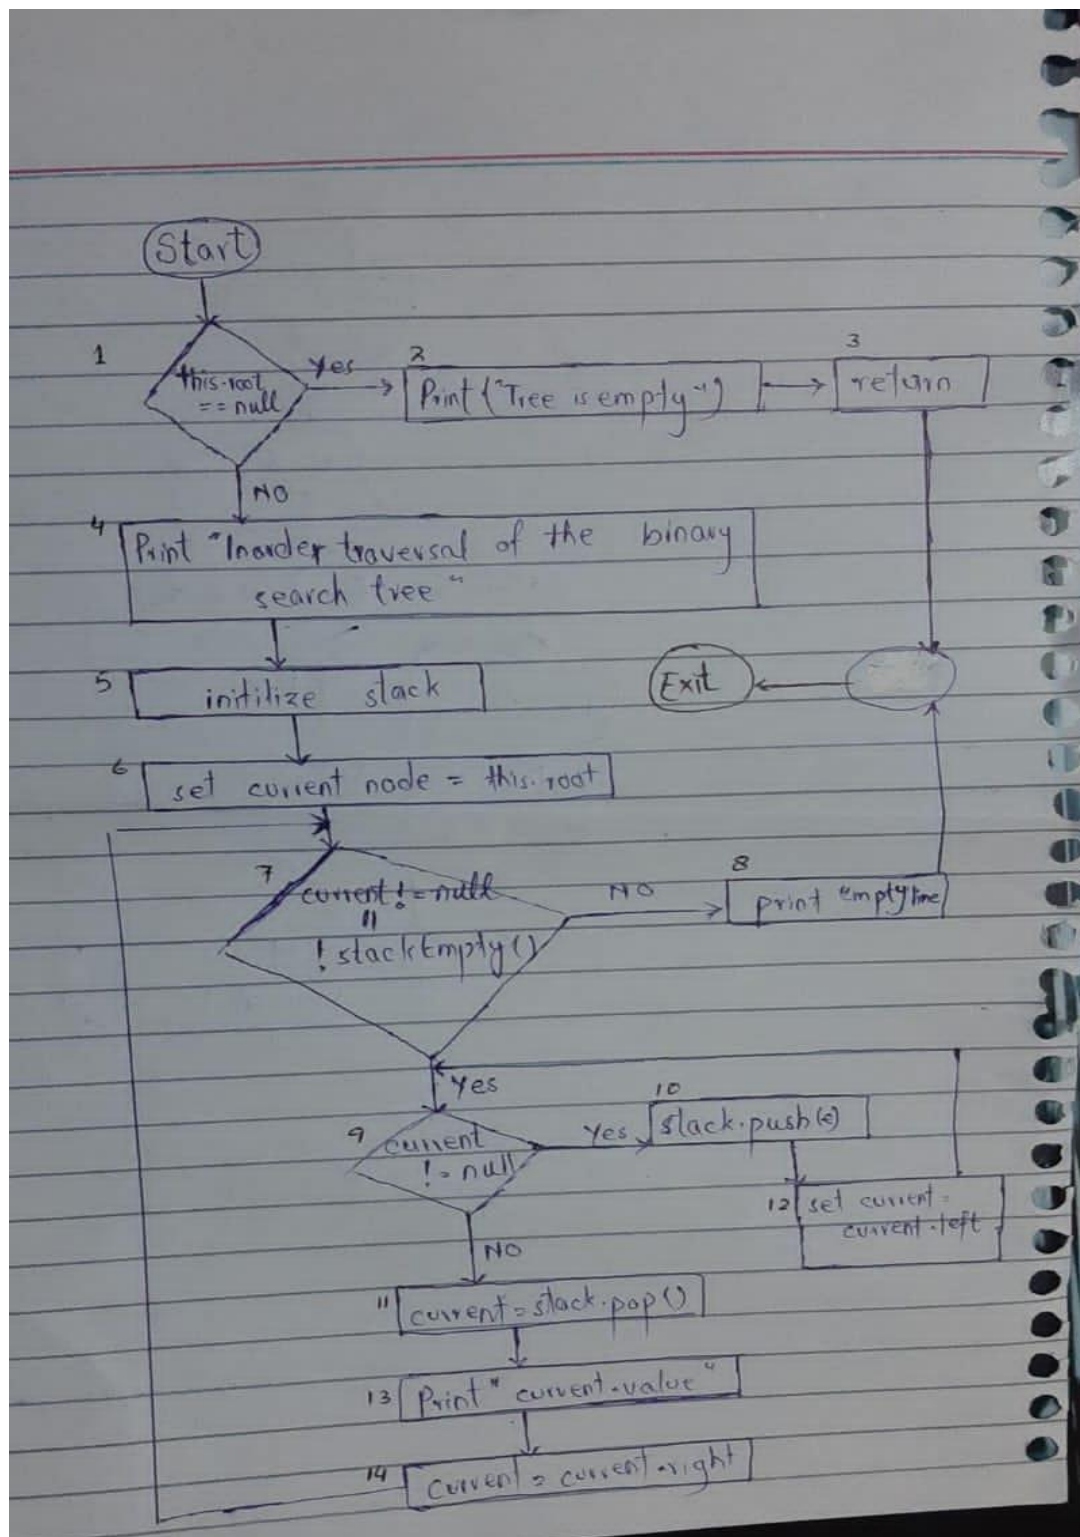 Start
1
this.root
== null
Yes
2
Print ("Tree is empty")
3
return
NO
4
Print "Inorder traversal of the binary
search tree"
5
initilize stack
Exit
6
set current node = this.root
7
current != null
||
! stackEmpty()
NO
8
print emptyline
Yes
9
current
!= null
Yes
10
stack.push(c)
12
set current =
current.left
NO
11
current = stack.pop()
13
Print "current.value"
14
current = current.right